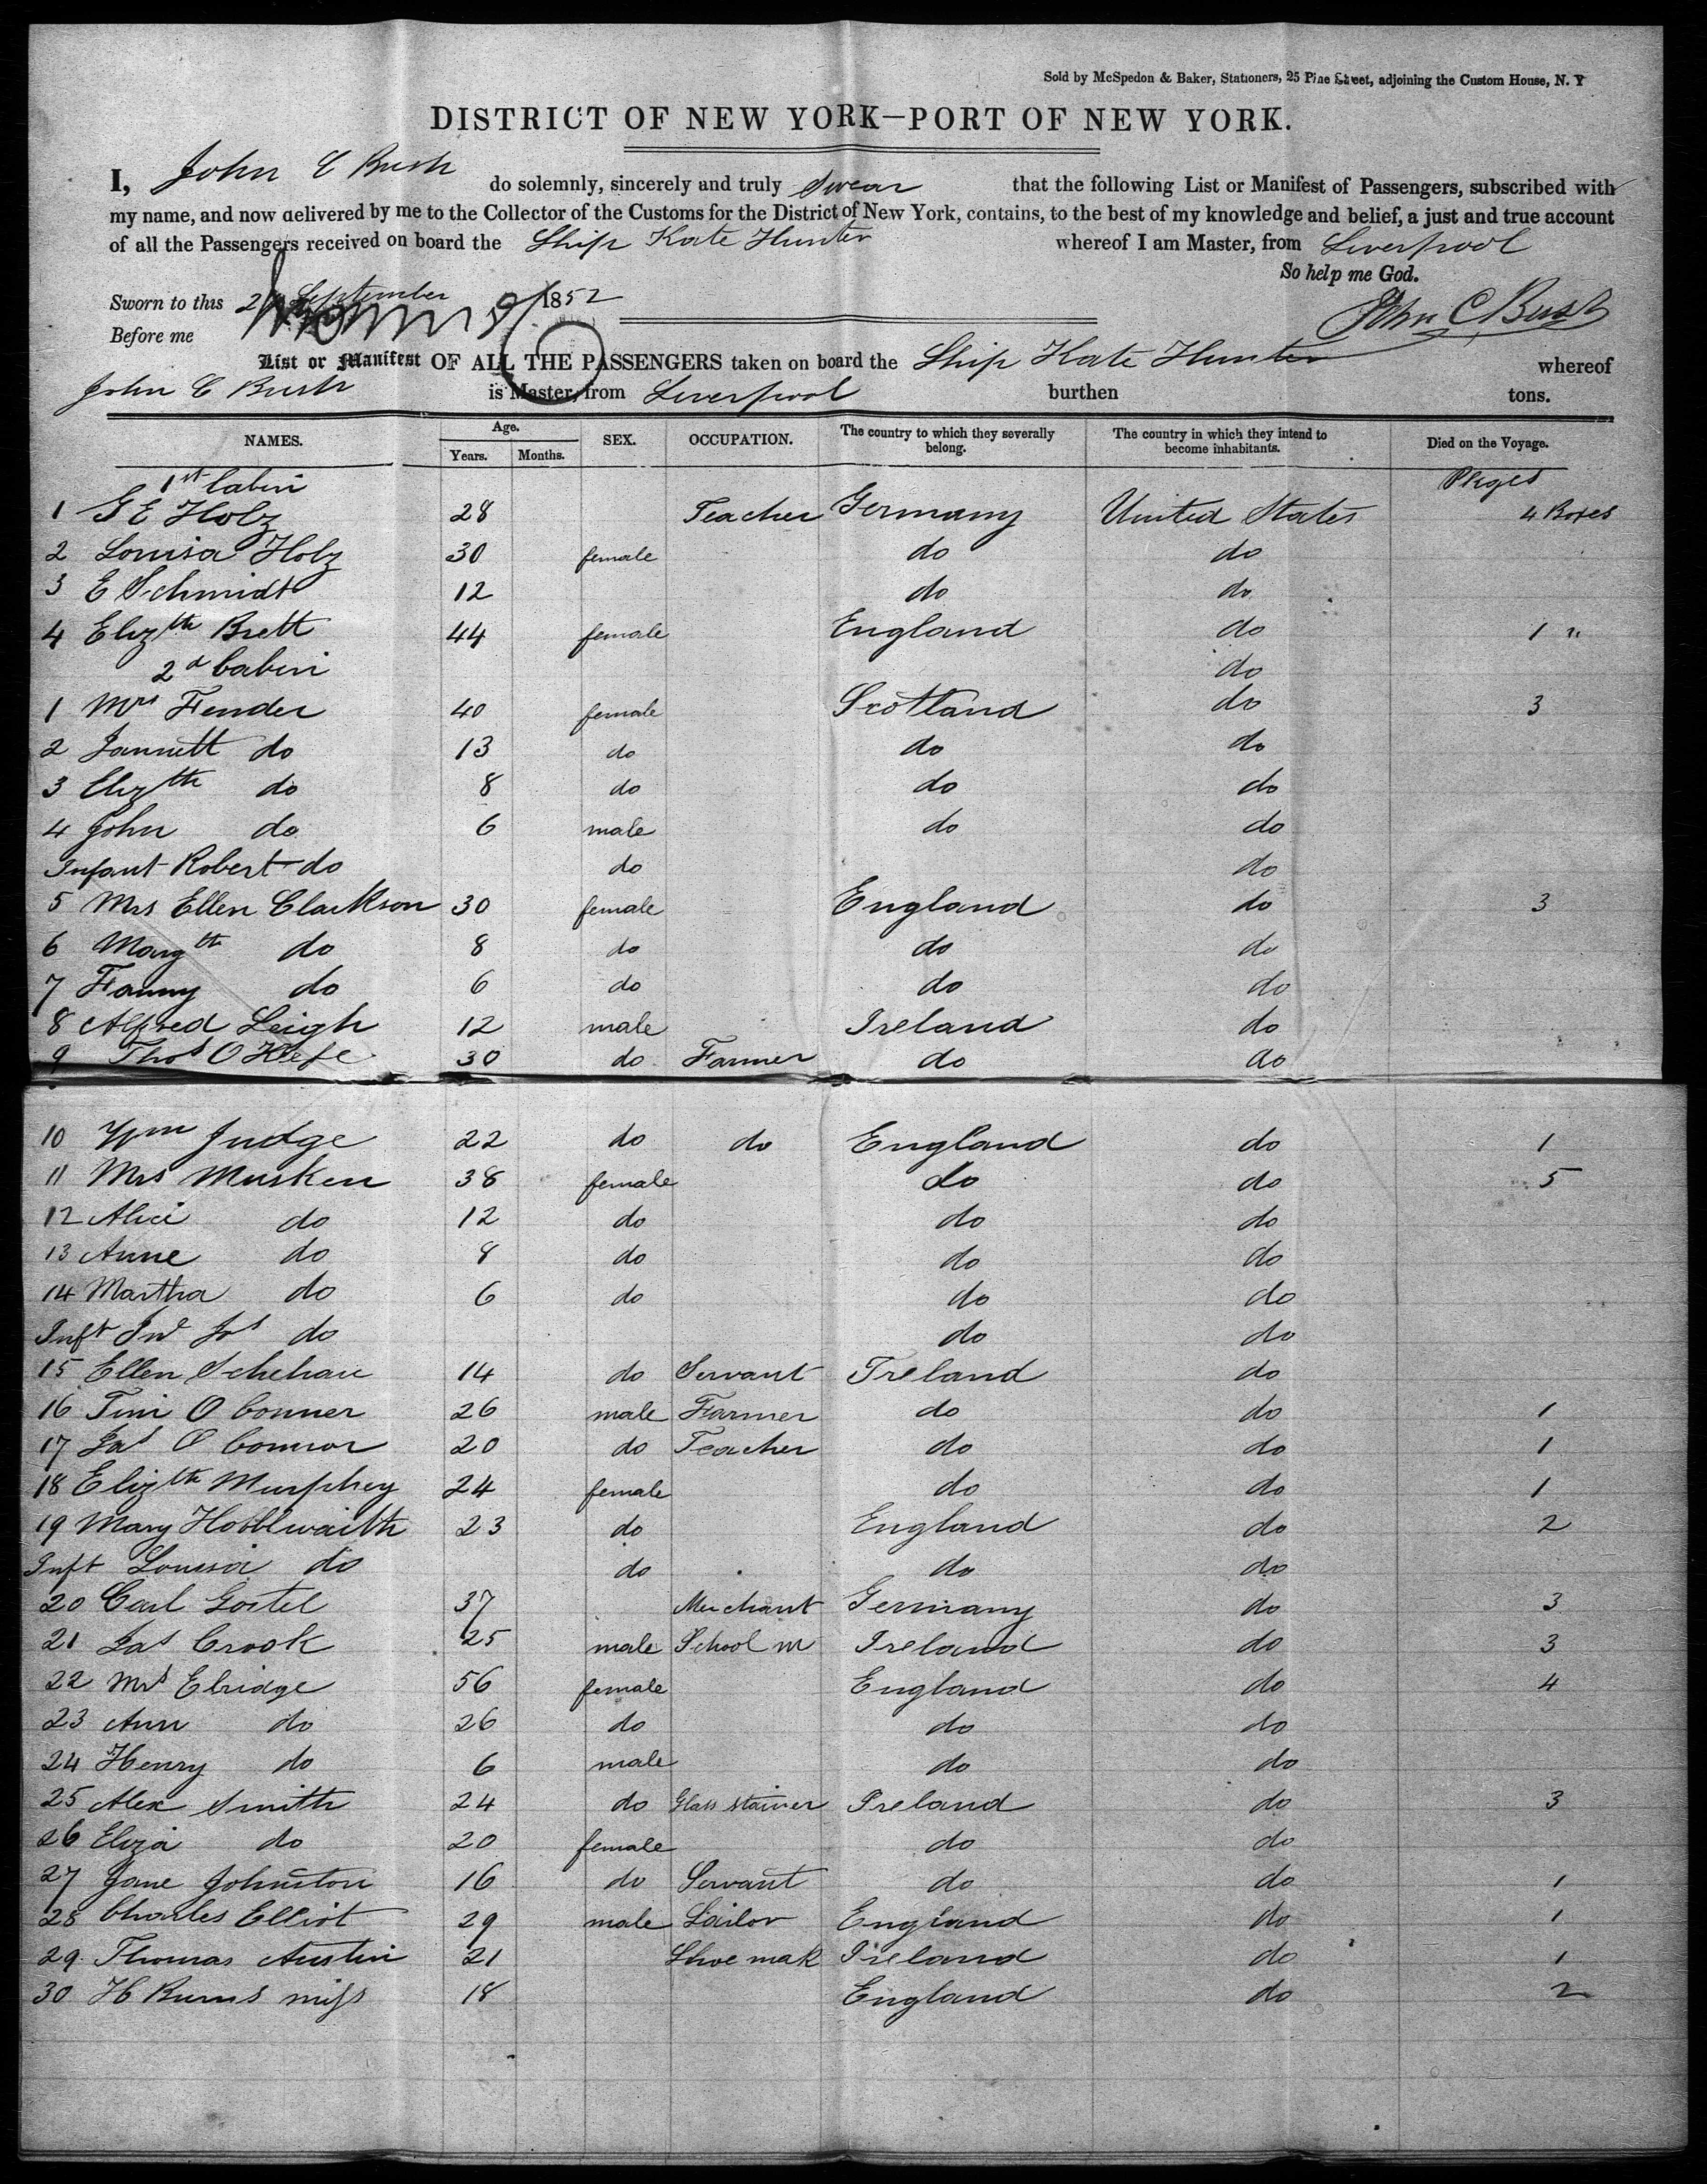 Sold by McSpedon & Baker, Stationers, 25 Pine Street, adjoining the Custom House, N. Y
DISTRICT OF NEW YORK—PORT OF NEW YORK.
I, John C Bush do solemnly, sincerely and truly swear that the following List or Manifest of Passengers, subscribed with
my name, and now delivered by me to the Collector of the Customs for the District of New York, contains, to the best of my knowledge and belief, a just and true account
of all the Passengers received on board the Ship Kate Hunter whereof I am Master, from Liverpool
So help me God.
Sworn to this September 1852
John C Bush
Before me
List or Manifest OF ALL THE PASSENGERS taken on board the Ship Kate Hunter whereof
John C Bush is Master, from Liverpool burthen tons.
NAMES. Age. Years. Months. SEX. OCCUPATION. The country to which they severally belong. The country in which they intend to become inhabitants. Died on the Voyage.
1st Cabin Pkges
1 G E Holz 28 Teacher Germany United States 4 Boxes
2 Louisa Holz 30 female do do
3 E Schmidt 12 do do
4 Elizth Brett 44 female England do 1 "
2d Cabin do
1 Mrs Fender 40 female Scotland do 3
2 Jannett do 13 do do do
3 Elizth do 8 do do do
4 John do 6 male do do
Infant Robert do do do
5 Mrs Ellen Clarkson 30 female England do 3
6 Margth do 8 do do do
7 Fanny do 6 do do do
8 Alfred Leigh 12 male Ireland do
9 Thos O Kefe 30 do Farmer do do
10 Wm Judge 22 do do England do 1
11 Mrs Musken 38 female do do 5
12 Alice do 12 do do do
13 Anne do 8 do do do
14 Martha do 6 do do do
Inft do do do
15 Ellen Schehan 14 do Servant Ireland do
16 Tim O Conner 26 male Farmer do do 1
17 Jas O Connor 20 do Teacher do do 1
18 Elizth Murphey 24 female do do 1
19 Mary Hobblwaith 23 do England do 2
Inft Louisa do do do do
20 Carl Gostel 37 Merchant Germany do 3
21 Jas Crook 25 male School m Ireland do 3
22 Mrs Elridge 56 female England do 4
23 Ann do 26 do do do
24 Henry do 6 male do do
25 Alex Smith 24 do Glass stainer Ireland do 3
26 Eliza do 20 female do do
27 Jane Johnston 16 do Servant do do 1
28 Charles Elliot 29 male Sailor England do 1
29 Thomas Austin 21 Shoe mak Ireland do 1
30 H Burns miss 18 England do 2